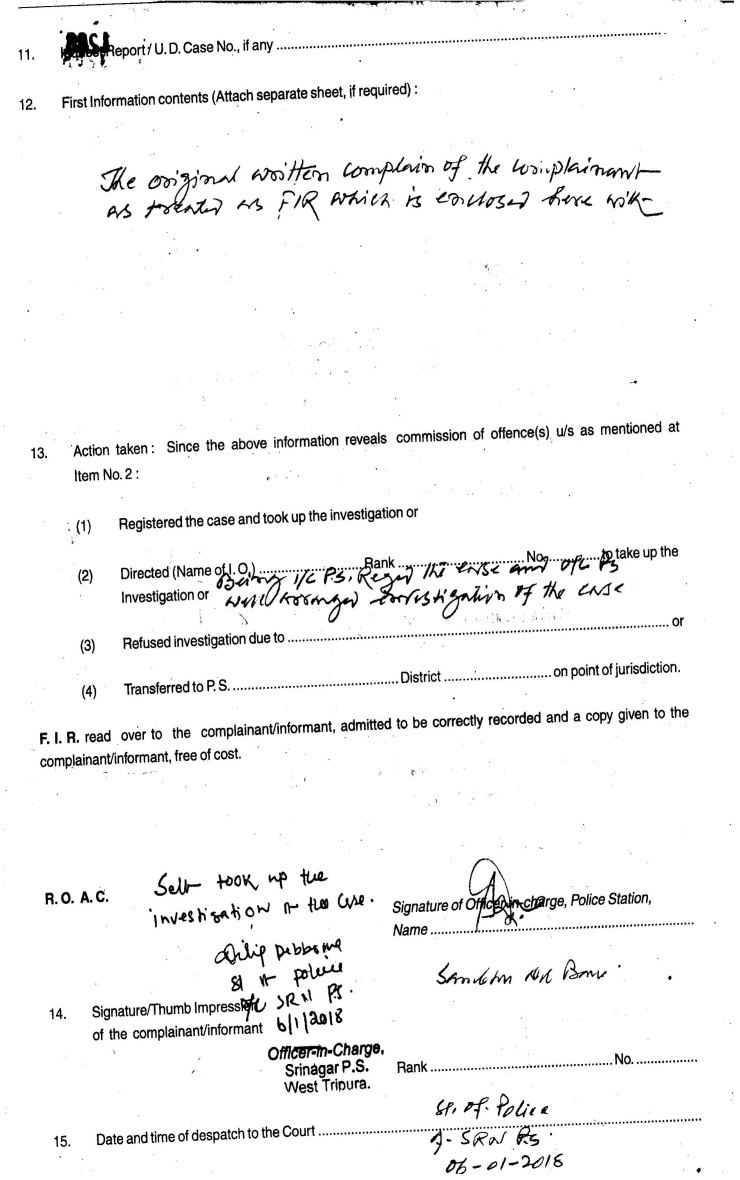 11. Report / U. D. Case No., if any
12. First Information contents (Attach separate sheet, if required) :
The original written complain of the complainant
as treated as FIR which is enclosed here with
13. Action taken : Since the above information reveals commission of offence(s) u/s as mentioned at
Item No. 2 :
(1) Registered the case and took up the investigation or
(2) Directed (Name of I. O.) Rank No. to take up the
Being I/C PS. Reged the case and O/C PS
Investigation or
will arranged investigation of the case
(3) Refused investigation due to or
(4) Transferred to P. S. District on point of jurisdiction.
F. I. R. read over to the complainant/informant, admitted to be correctly recorded and a copy given to the
complainant/informant, free of cost.
R. O. A. C.
Self took up the
investigation of the case.
Dilip Debbarma
SI of police
O/C SRN PS.
6/1/2018
Signature of Officer-in-charge, Police Station,
Name
14. Signature/Thumb Impression
of the complainant/informant
Officer-in-Charge,
Srinagar P.S.
West Tripura.
Rank No.
SI. of Police
SRN PS.
06-01-2018
15. Date and time of despatch to the Court